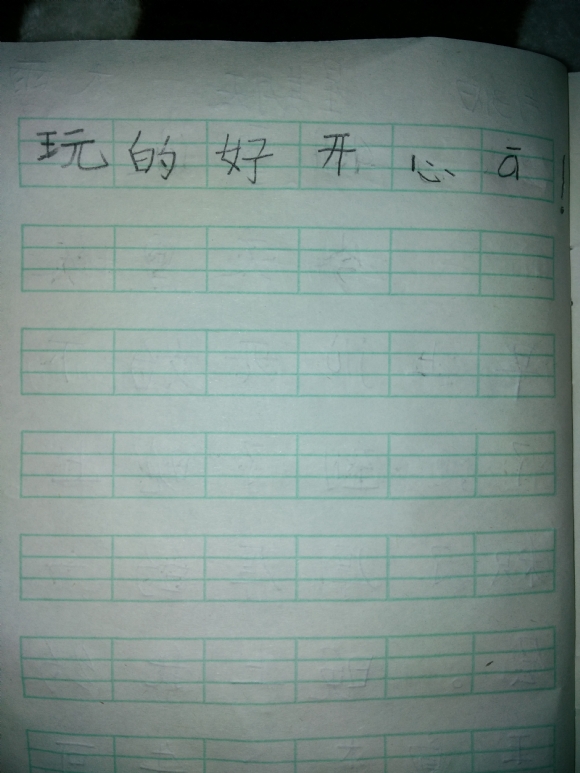 玩的好开心ā!